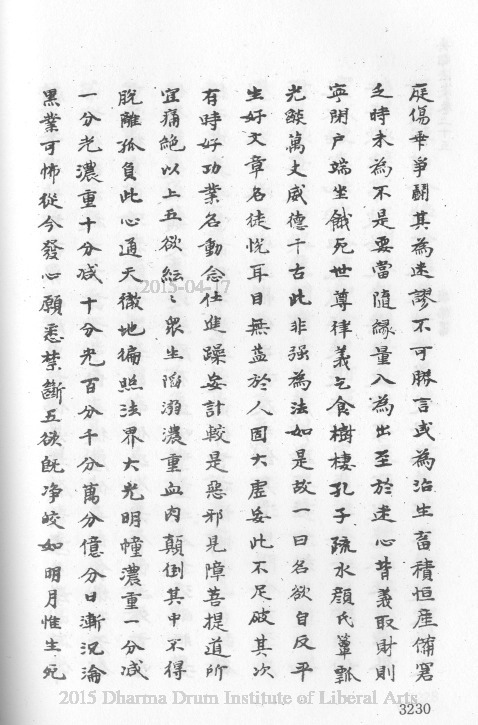 屐傷垂爭鬭其為迷謬不可勝言或為治生畜積恒產備詈
乏時未為不是要當隨緣量入為出至於迷心背義取財則
寧閉户端坐餓死世尊律義乞食樹棲孔子疏水顏氏簞瓢
光燄萬丈威德千古此非强為法如是故一曰名欲自反平
生好文章名徒悅耳目無益於人固大虛妄此不足破其次
有時好功業名動念仕進躁妄計較是惡邪見障菩提道所
宜痛絕以上五欲紜〻眾生陷溺濃重血肉顛倒其中不得
脫離孤負此心通天徹地徧照法界大光明幢濃重一分减
一分光濃重十分减十分光百分千分萬分億分日漸沉淪
黑業可怖從今發心願悉禁斷五欲旣净皎如明月惟生死
2015-04-17
2015 Dharma Drum Institute of Liberal Arts
3230